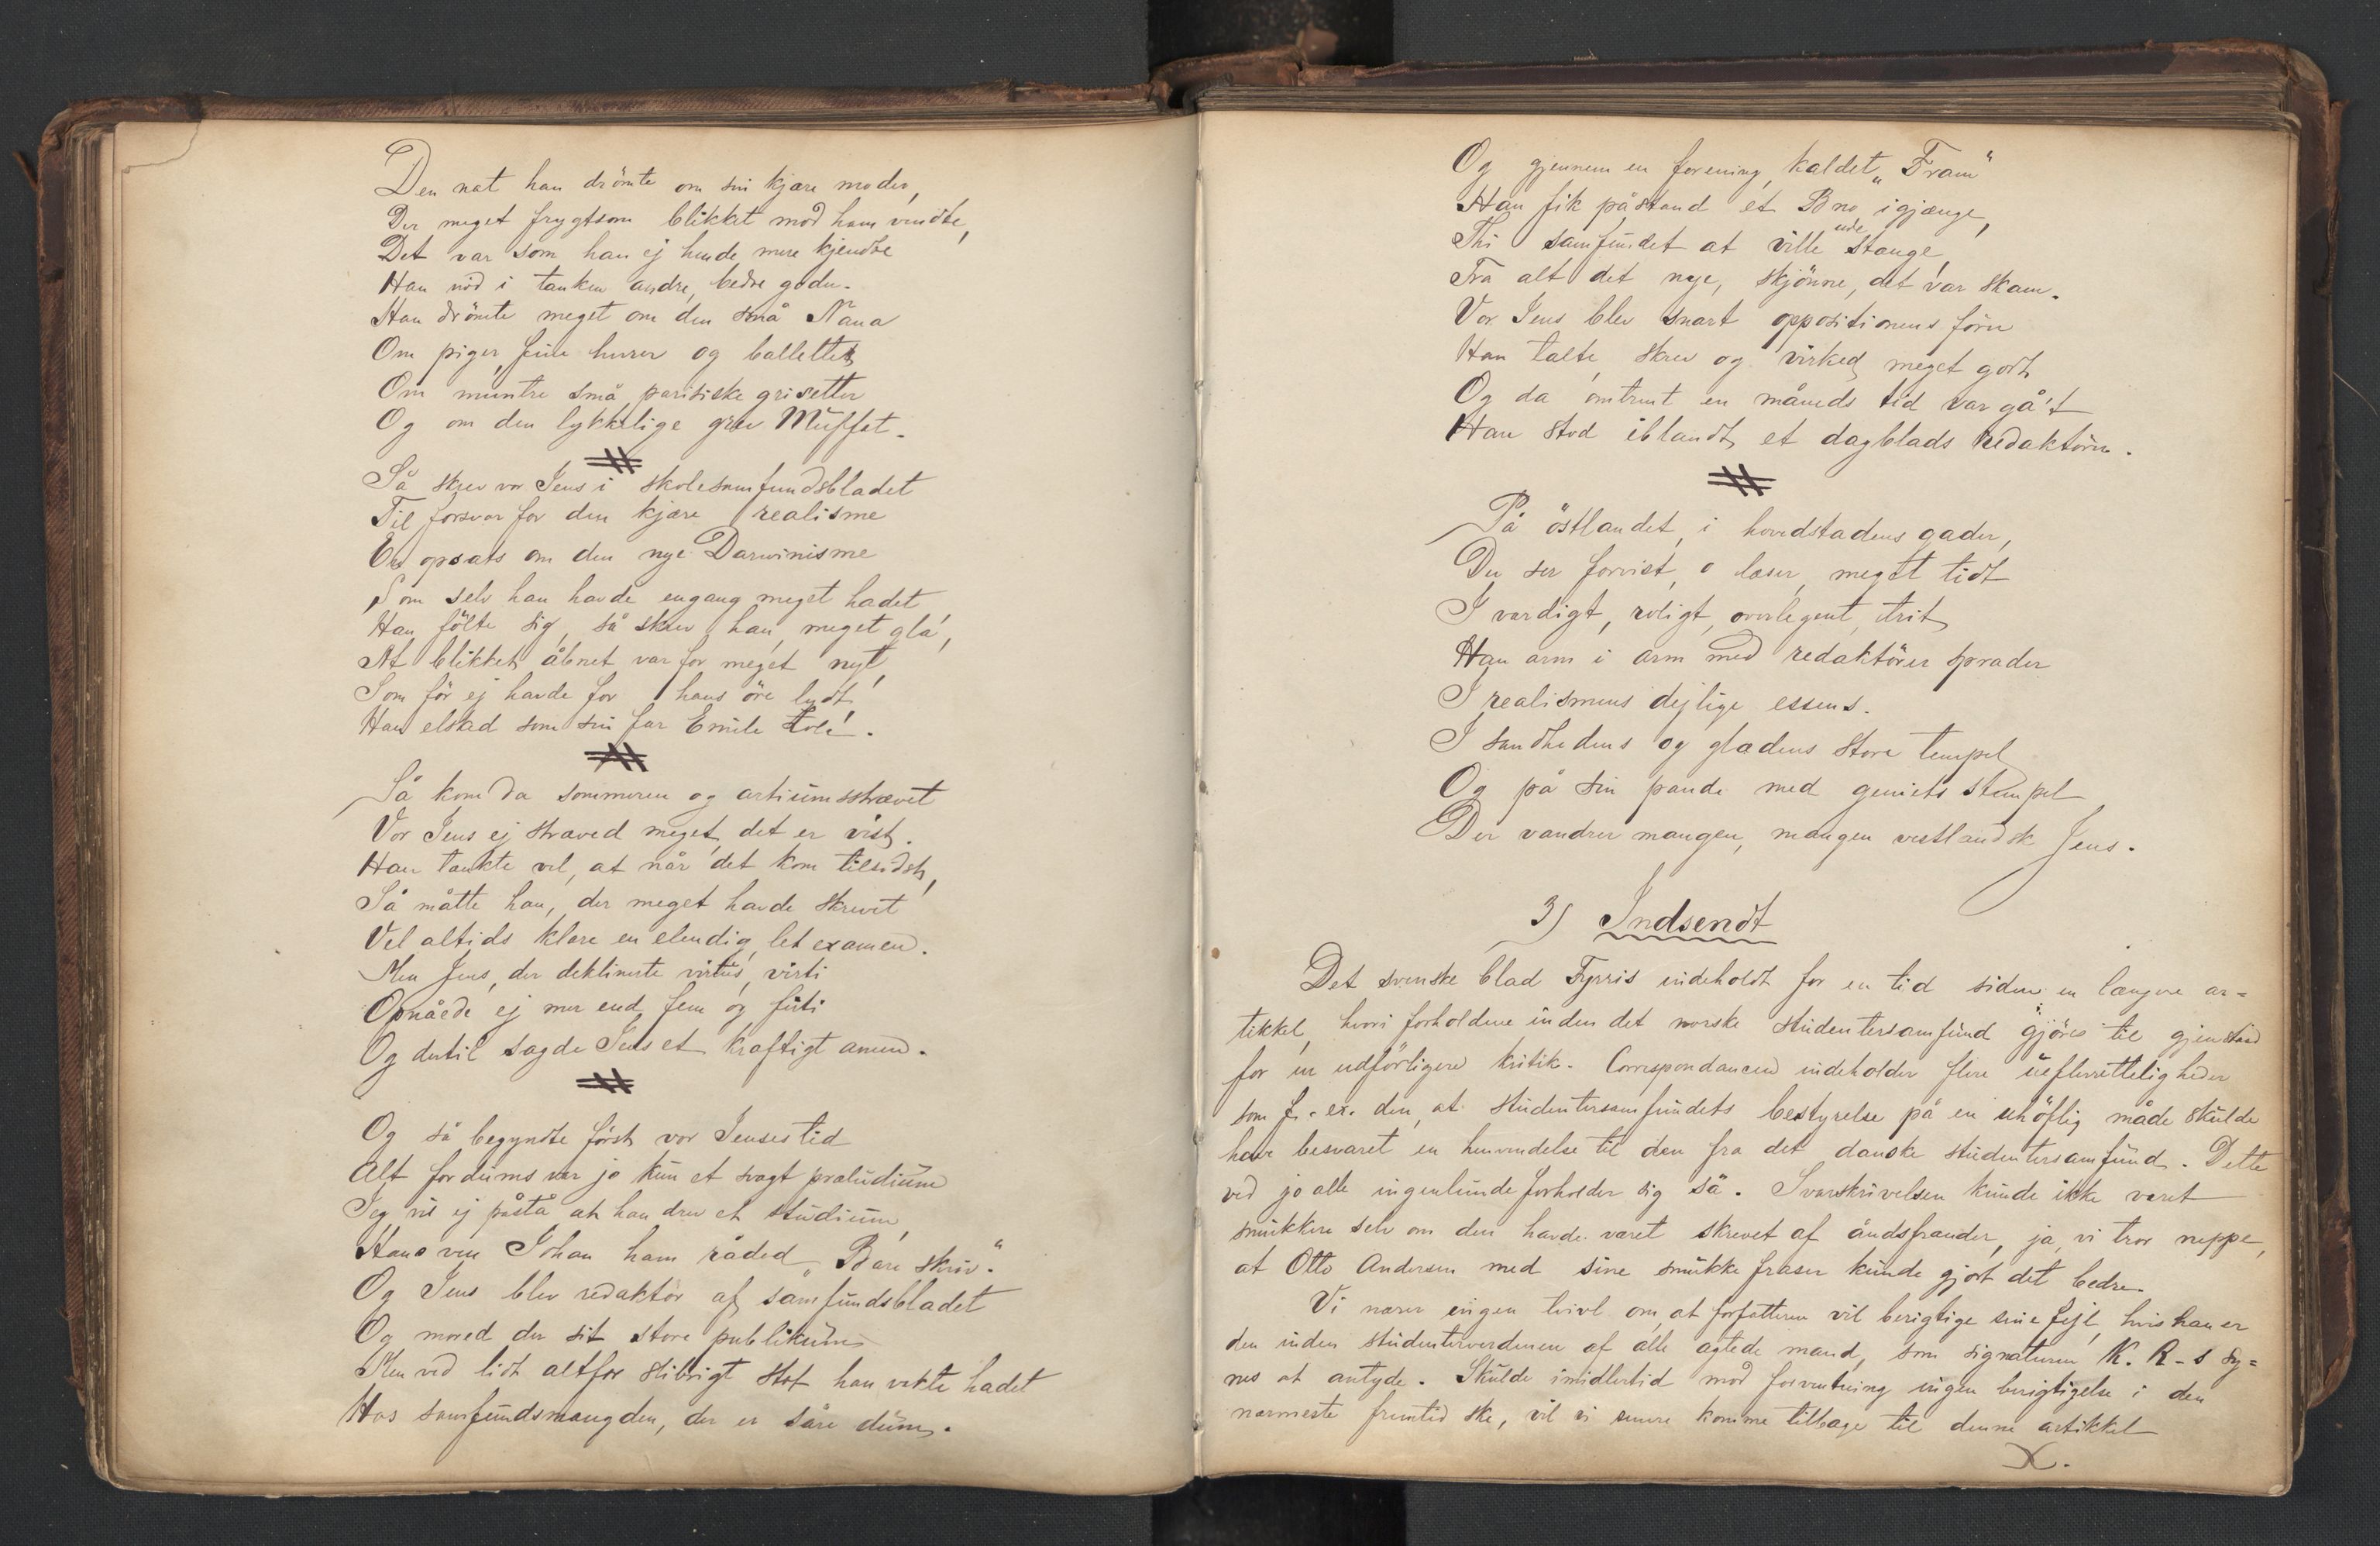 Den nat han drömte om sin kjære moder,
Der meget frygtsom blikket mod ham vendte,
Det var som han ej hende mere kjendte
Han nöd i tanken andre, bedre goder.
Han drömte meget om den små Nana
Om piger, fine hurer og balletter
Om muntre små parisiske grisetter
Og om den lykkelige grev Müffat.
Så skrev vor Jens i skolesamfundsbladet
Til forsvar for den kjære realisme
En opsats om den nye Darwinisme
Som selv han havde engang meget hadet
Han fölte sig, så skrev han, meget gla',
At blikket åbnet var for meget nyt,
Som för ej havde for hans öre lydt,
Han elsked som sin far Emile Zola.
Så kom da sommeren og artiumsstrævet
Vor Jens ej stræved meget, det er vist.
Han tænkte vel, at når det kom tilsidst,
Så måtte han, der meget havde skrevet
Vel altids klare en elendig, let examen.
Men Jens, der deklinerte virtus, virti
Opnåede ej mer end fem og fürti
Og dertil sagde Jens et kraftigt amen.
Og så begyndte först vor Jenses tid
Alt fordums var jo kun et svagt præludium
Jeg vil ej påstå at han drev et studium,
Hans ven Johan ham råded „Bare skriv."
Og Jens blev redaktör af samfundsbladet
Og mored der sit store publikum
Men ved lidt altfor slibrigt stof han vekte hadet
Hos samfundsmængden, der er såre dum.
Og gjennem en forening, kaldet „Fram"
Han fik påstand et Bno igjænge,
Thi samfundet at ville ude stænge
Fra alt det nye, skjönne, det var skam.
Vor Jens blev snart oppositionens förer
Han talte, skrev og virked meget godt
Og da omtrent en måneds tid var gå't
Han stod iblandt et dagblads redaktörer.
På östlandet, i hovedstadens gader,
Du ser forvist, o læser, meget tidt
I værdigt, roligt, overlegent trit
Han arm i arm med redaktörer sprader
I realismens dejlige essens.
I sandhedens og glædens store tempel
Og på sin pande med geniets stempel
Der vandrer mangen, mangen vestlandsk Jens.
3) Indsendt
Det svenske blad Fyris indeholdt for en tid siden en længere ar=
tikkel, hvori forholdene inden det norske studentersamfund gjöres til gjenstand
for en udförligere kritik. Correspondancen indeholder flere uefterretteligheder
som f. ex. den, at studentersamfundets bestyrelse på en uhöflig måde skulde
have besvaret en henvendelse til den fra det danske studentersamfund. Dette
ved jo alle ingenlunde forholder sig så. Svarskrivelsen kunde ikke været
smukkere selv om den havde været skrevet af åndsfrænder, ja, vi tror neppe,
at Otto Andersen med sine smukke fraser kunde gjort det bedre.
Vi nærer ingen tvivl om, at forfatteren vil berigtige sine fejl, hvis han er
den inden studenterverdenen af alle agtede mand, som signaturen K. R-s sy=
nes at antyde. Skulde imidlertid mod forventning ingen berigtigelse i den
nærmeste fremtid ske, vil vi senere komme tilbage til denne artikkel
X.